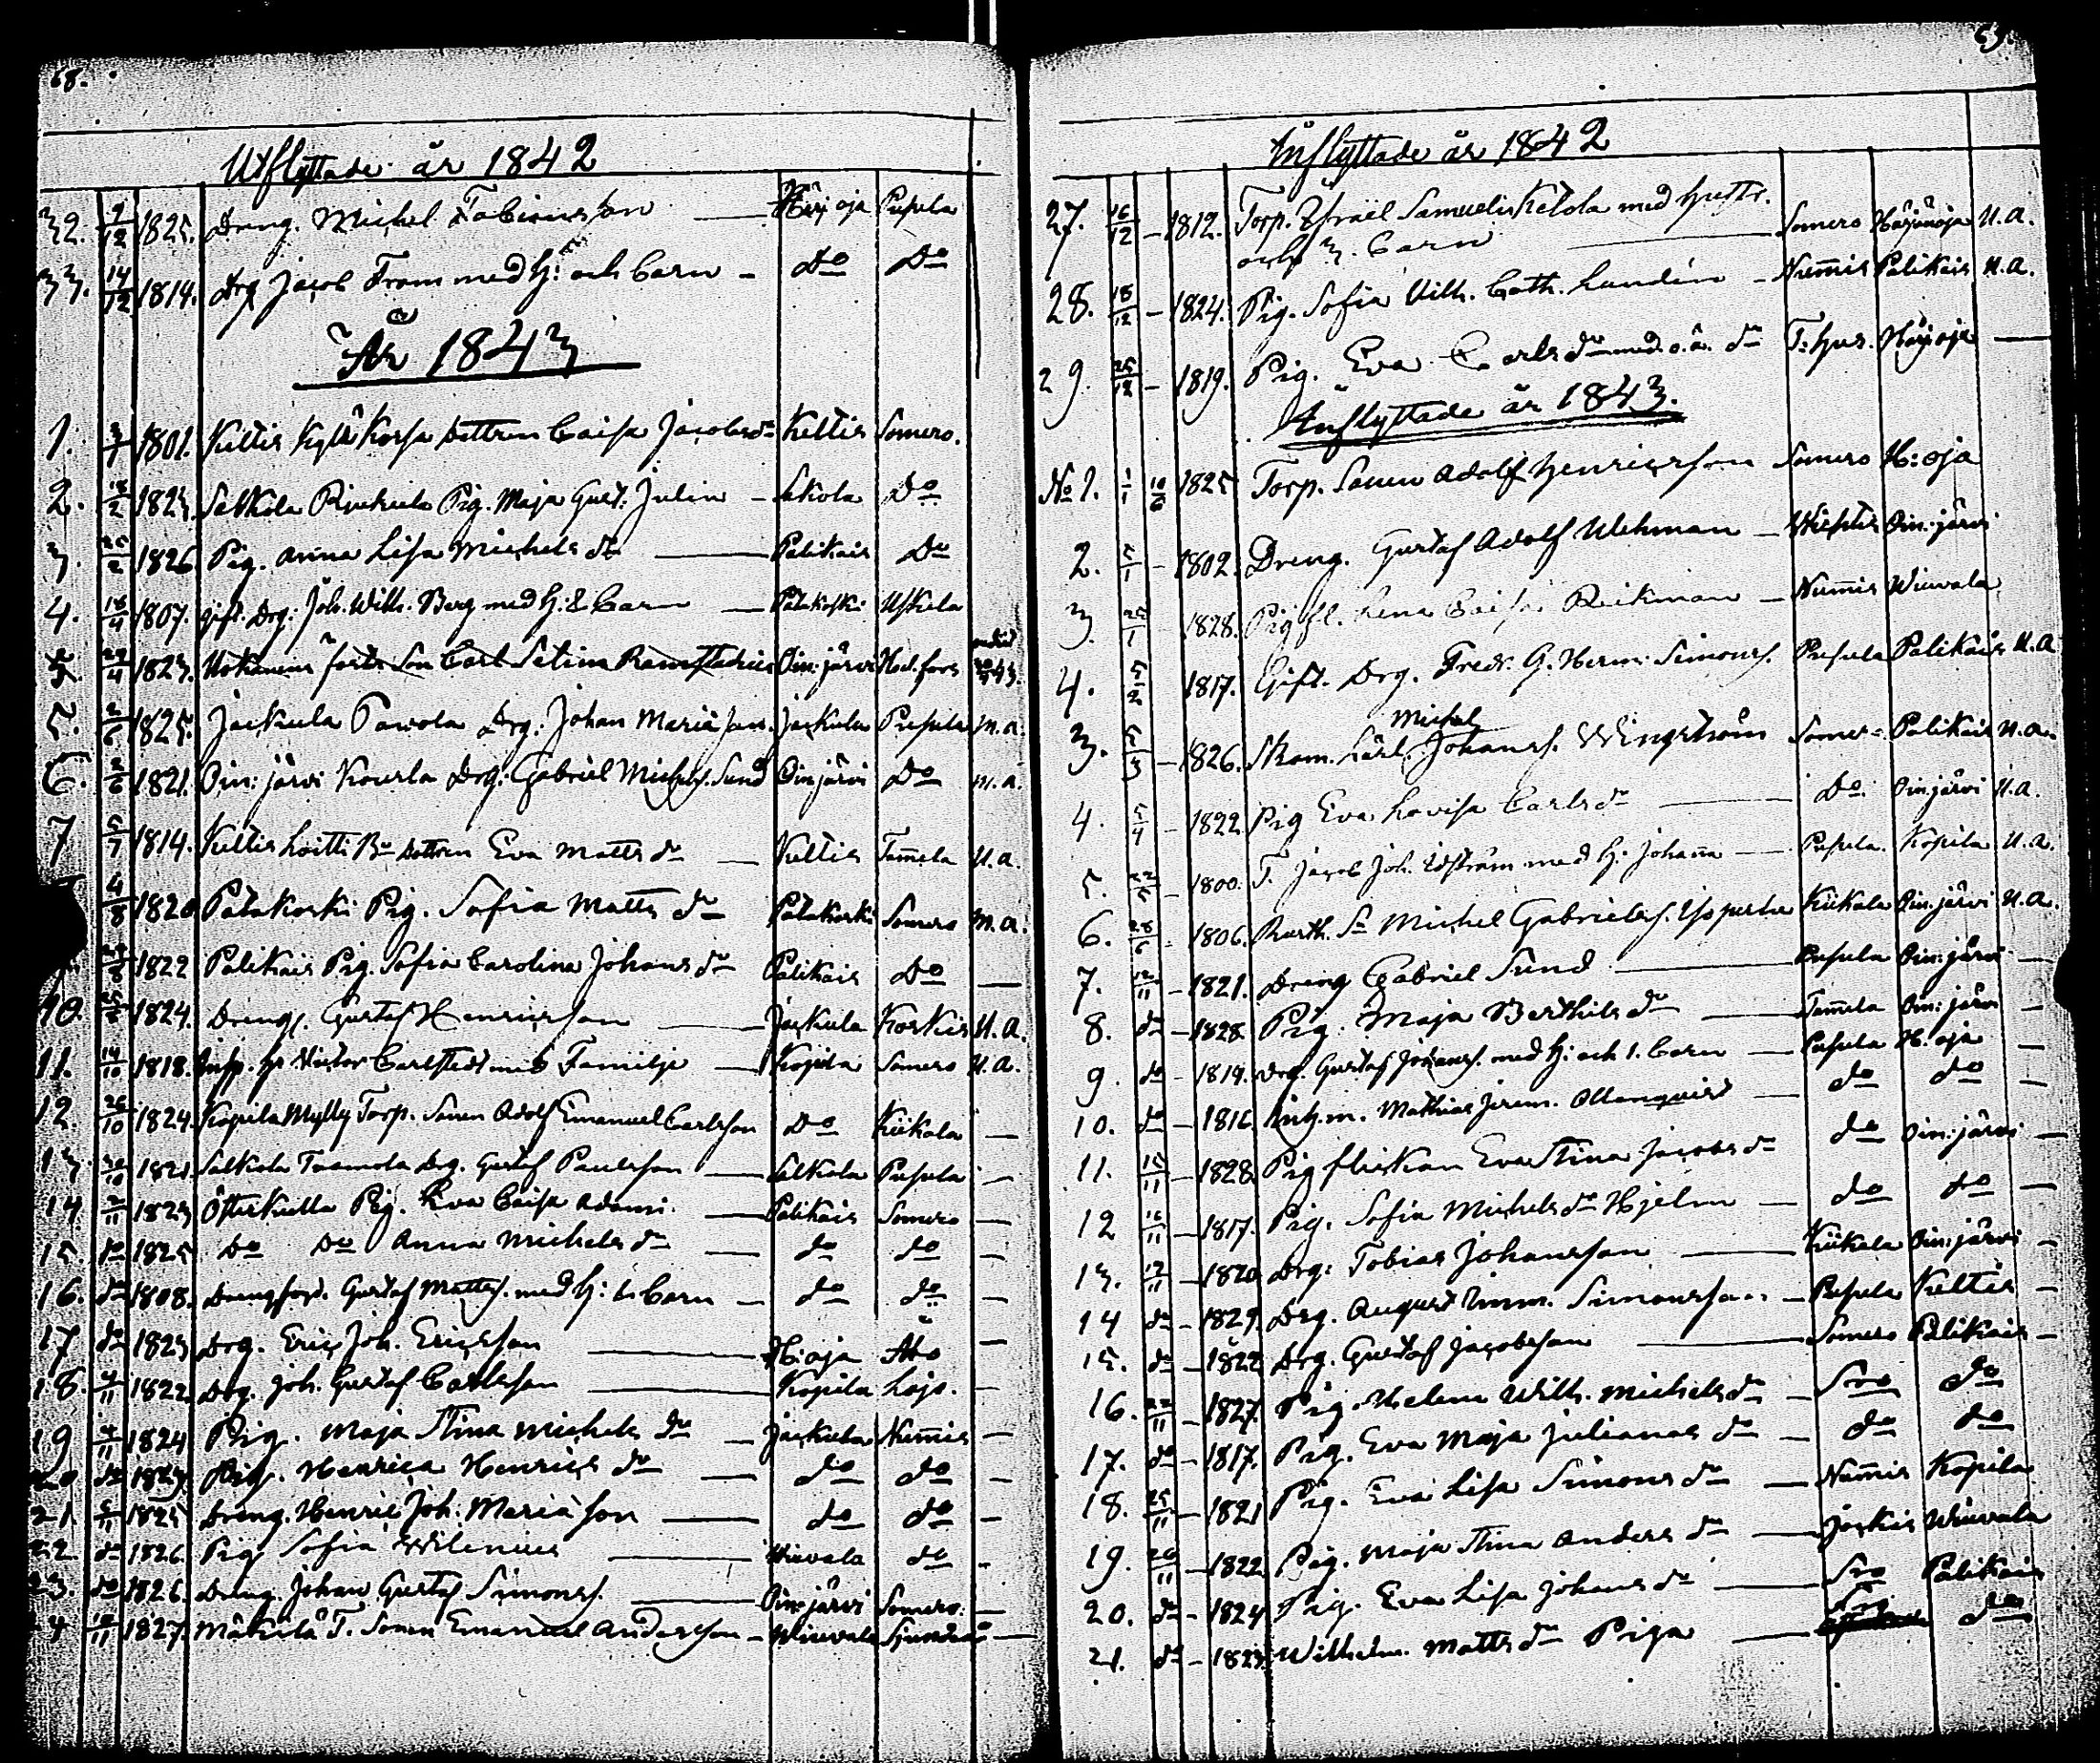 68.
Utflyttade år 1842
32. 9/12 1825. Dreng. Michel Fabiansson — Härj oja Pusula
33. 14/12 1814. Drg Jacob Fram med H: och barn - Do Do
År 1843
1. 3/1 1801. Keltis Kylä Korpa dottren Caisa Jacobsdr Keltis Somero.
2. 18/2 1823. Salkola Pig. Maja Gust: Julin - Salkola Do
3. 25/2 1826 Pig. Anna Lisa Michels dr — Palikais Do
4. 18/4 1807. gift. Drg. Joh. Wilh. Berg med H: & Barn — Patakoski Uskela
27/4 1823. Son Carl Oin: järvi Hed.fors
5. 2/6 1825. Jackula Pawola Drg: Johan Mariä son. Jackula Pusula M.a.
6. 2/6 1821. Oin: järvi Kourla Drg: Gabriel Michels. Sund Oinjärvi Do M.a.
7 5/7 1814. Keltis Loitti Bn dottren Eva Matts dr — Keltis Tam̄ela U.a.
4/8 1820 Patakoski Pig. Sofia Matts dr — Patakoski Somero M.a.
1822 Palikais Pig. Sofia Carolina Johans dr Palikais Do —
10. 1824. Drengs. Gustaf Henricsson — Jackula Korkis U.a.
11. 14/10 1818. Insp. Hr Victor Carlstedt med Familje — Kopila Somero U.a.
12. 26/10 1824. Kopila Mylly Torp. Sonen Adolf Emanuel Carlsson Do Kiikala —
13. 1821. Salkola Tuomola Drg. Gustaf Paulsson — Salkola Pusula —
14 2/11 1823 Österkulla Pig. Eva Caisa Adami. — Palikais Somero —
15. do 1825 Do Do Anna Michels dr — do do —
16. do 1808. Drengsford. Gustaf Mattss. med H: & Barn — do do —
17 do 1823 Drg. Eric Joh. Ericsson — H:oja Åbo —
18. 4/11 1822. Drg. Joh. Gustaf Carlsson — Kopila Lojo. —
19 4/11 1824 Pig. Maja Stina Michels dr — Jackula Num̄is —
20 do 1823. Pig. Henrica Henrics dr — do do —
21. 5/11 1825 Dreng. Henric Joh. Mariä son — do do —
22 do 1826. Pig Sofia Wilenius — Wiuvala do -
23. do 1826. Dreng. Johan Gustaf Simonss. — Oin: järvi Somero. —
24 10/11 1827. Mäkilä T. Sonen Emanuel Andersson - Wiuvala Sjundeå —
69.
Inflyttade år 1842
27. 16/12 - 1812. Torp. Israël Samuelss. Ketola med hustr.
och 3. barn — Somero Härjänoja U.a.
28. 18/12 - 1824. Pig. Sofia Vilh. Cath. Lundén - Num̄is Palikais U.a.
29. 25/12 - 1819. Pig. Eva Carls dr med o.ä. dr T:hus. Härj oja —
Inflyttade år 1843.
No 1. 1/1 10/6 1825 Torp. Sonen Adolf Henricsson Somero H:oja
2. 5/1 - 1802. Dreng. Gustaf Adolf Uhman — Wichtis Oin: järvi
3. 25/1 1828. Pig fl. Lena Caisa Reikman — Num̄is Wiuvala
4. 5/2 1817. Gift. Drg. Fredr. G. Herm. Simonss. Pusula Palikais U.a
Michel
3. 5/3 - 1826. Skom. Lärl. Johanss. Wengström Somero Palikais U.a.
4. 5/4 - 1822 Pig Eva Lovisa Carls dr — Do. Oin järvi U.a.
5. - 1800. T. Jacob Joh. Idström med H: Johan̄a — Pusula. Kopila U.a.
6. 28/6 - 1806. Michel Gabrielss. Kiikala Oin: järvi U.a.
7. 12/11 - 1821. Dreng Gabriel Sund — Pusula Oin: järvi —
8. do - 1828. Pig. Maja Berthils dr — Tam̄ela Oin: järvi —
9. do - 1819. Drg. Gustaf Johanss. med H: och 1. barn — Pusula H. oja —
10. do - 1816. Inh.m. Mathias Jerem. Ollenqvist — do do —
11. 15/11 - 1828. Pig flickan Eva Stina Jacobs dr do Oin: järvi —
12 16/11 - 1817. Pig. Sofia Michels dr Hjelm — do do —
13. 17/11 - 1820. Drg: Tobias Johansson — Kiikala Oin: järvi —
14 do - 1829. Drg. August Imm. Simonsson - Pusula Keltis —
15. do - 1822 Drg. Gustaf Jacobsson — Somero Palikais —
16. 22/11 - 1827. Pig. Helena Wilh. Michels dr — Sro do
17. do - 1817. Pig. Eva Maja Julianas dr — do do
18. 25/11 - 1821 Pig. Eva Lisa Simons dr — Num̄is Kopila
19. 26/11 - 1822 Pig. Maja Stina Anders dr — Jockis Wiuvala
20. do - 1824 Pig. Eva Lisa Johans dr — Sro Palikais
21. do - 1823. Wilhelm. Matts dr Piga — Sro do